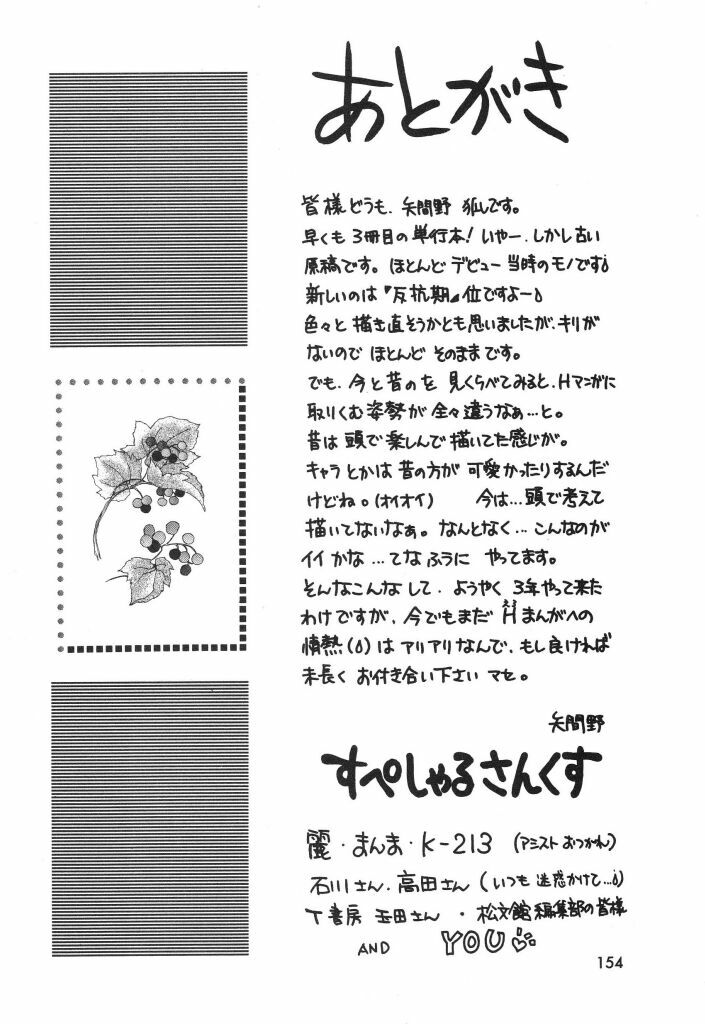 あとがき
皆様どうも、矢間野 狐です。
早くも3冊目の単行本!いやー、しかし古い
原稿です。ほとんどデビュー当時のモノです
新しいのは『反抗期』位ですよー
色々と描き直そうかとも思いましたが、キリが
ないのでほとんどそのままです。
でも、今と昔のを見くらべてみると、Hマンガに
取りくむ姿勢が全々違うなぁ…と。
昔は頭で楽しんで描いてた感じが。
キャラとかは昔の方が可愛かったりするんだ
けどね。(オイオイ) 今は…頭で考えて
描いてないなぁ。なんとなく…こんなのが
イイかな…てなふうに やってます。
そんなこんなして、ようやく3年やって来た
わけですが、今でもまだHまんがへの
情熱()はアリアリなんで、もし良ければ
末長くお付き合い下さいマセ。
矢間野
すぺしゃるさんくす
麗・まんま・K-213 (アシスト おつかれ)
石川さん、高田さん(いつも迷惑かけて…)
T書房 玉田さん・松文館編集部の皆様
AND YOU
154